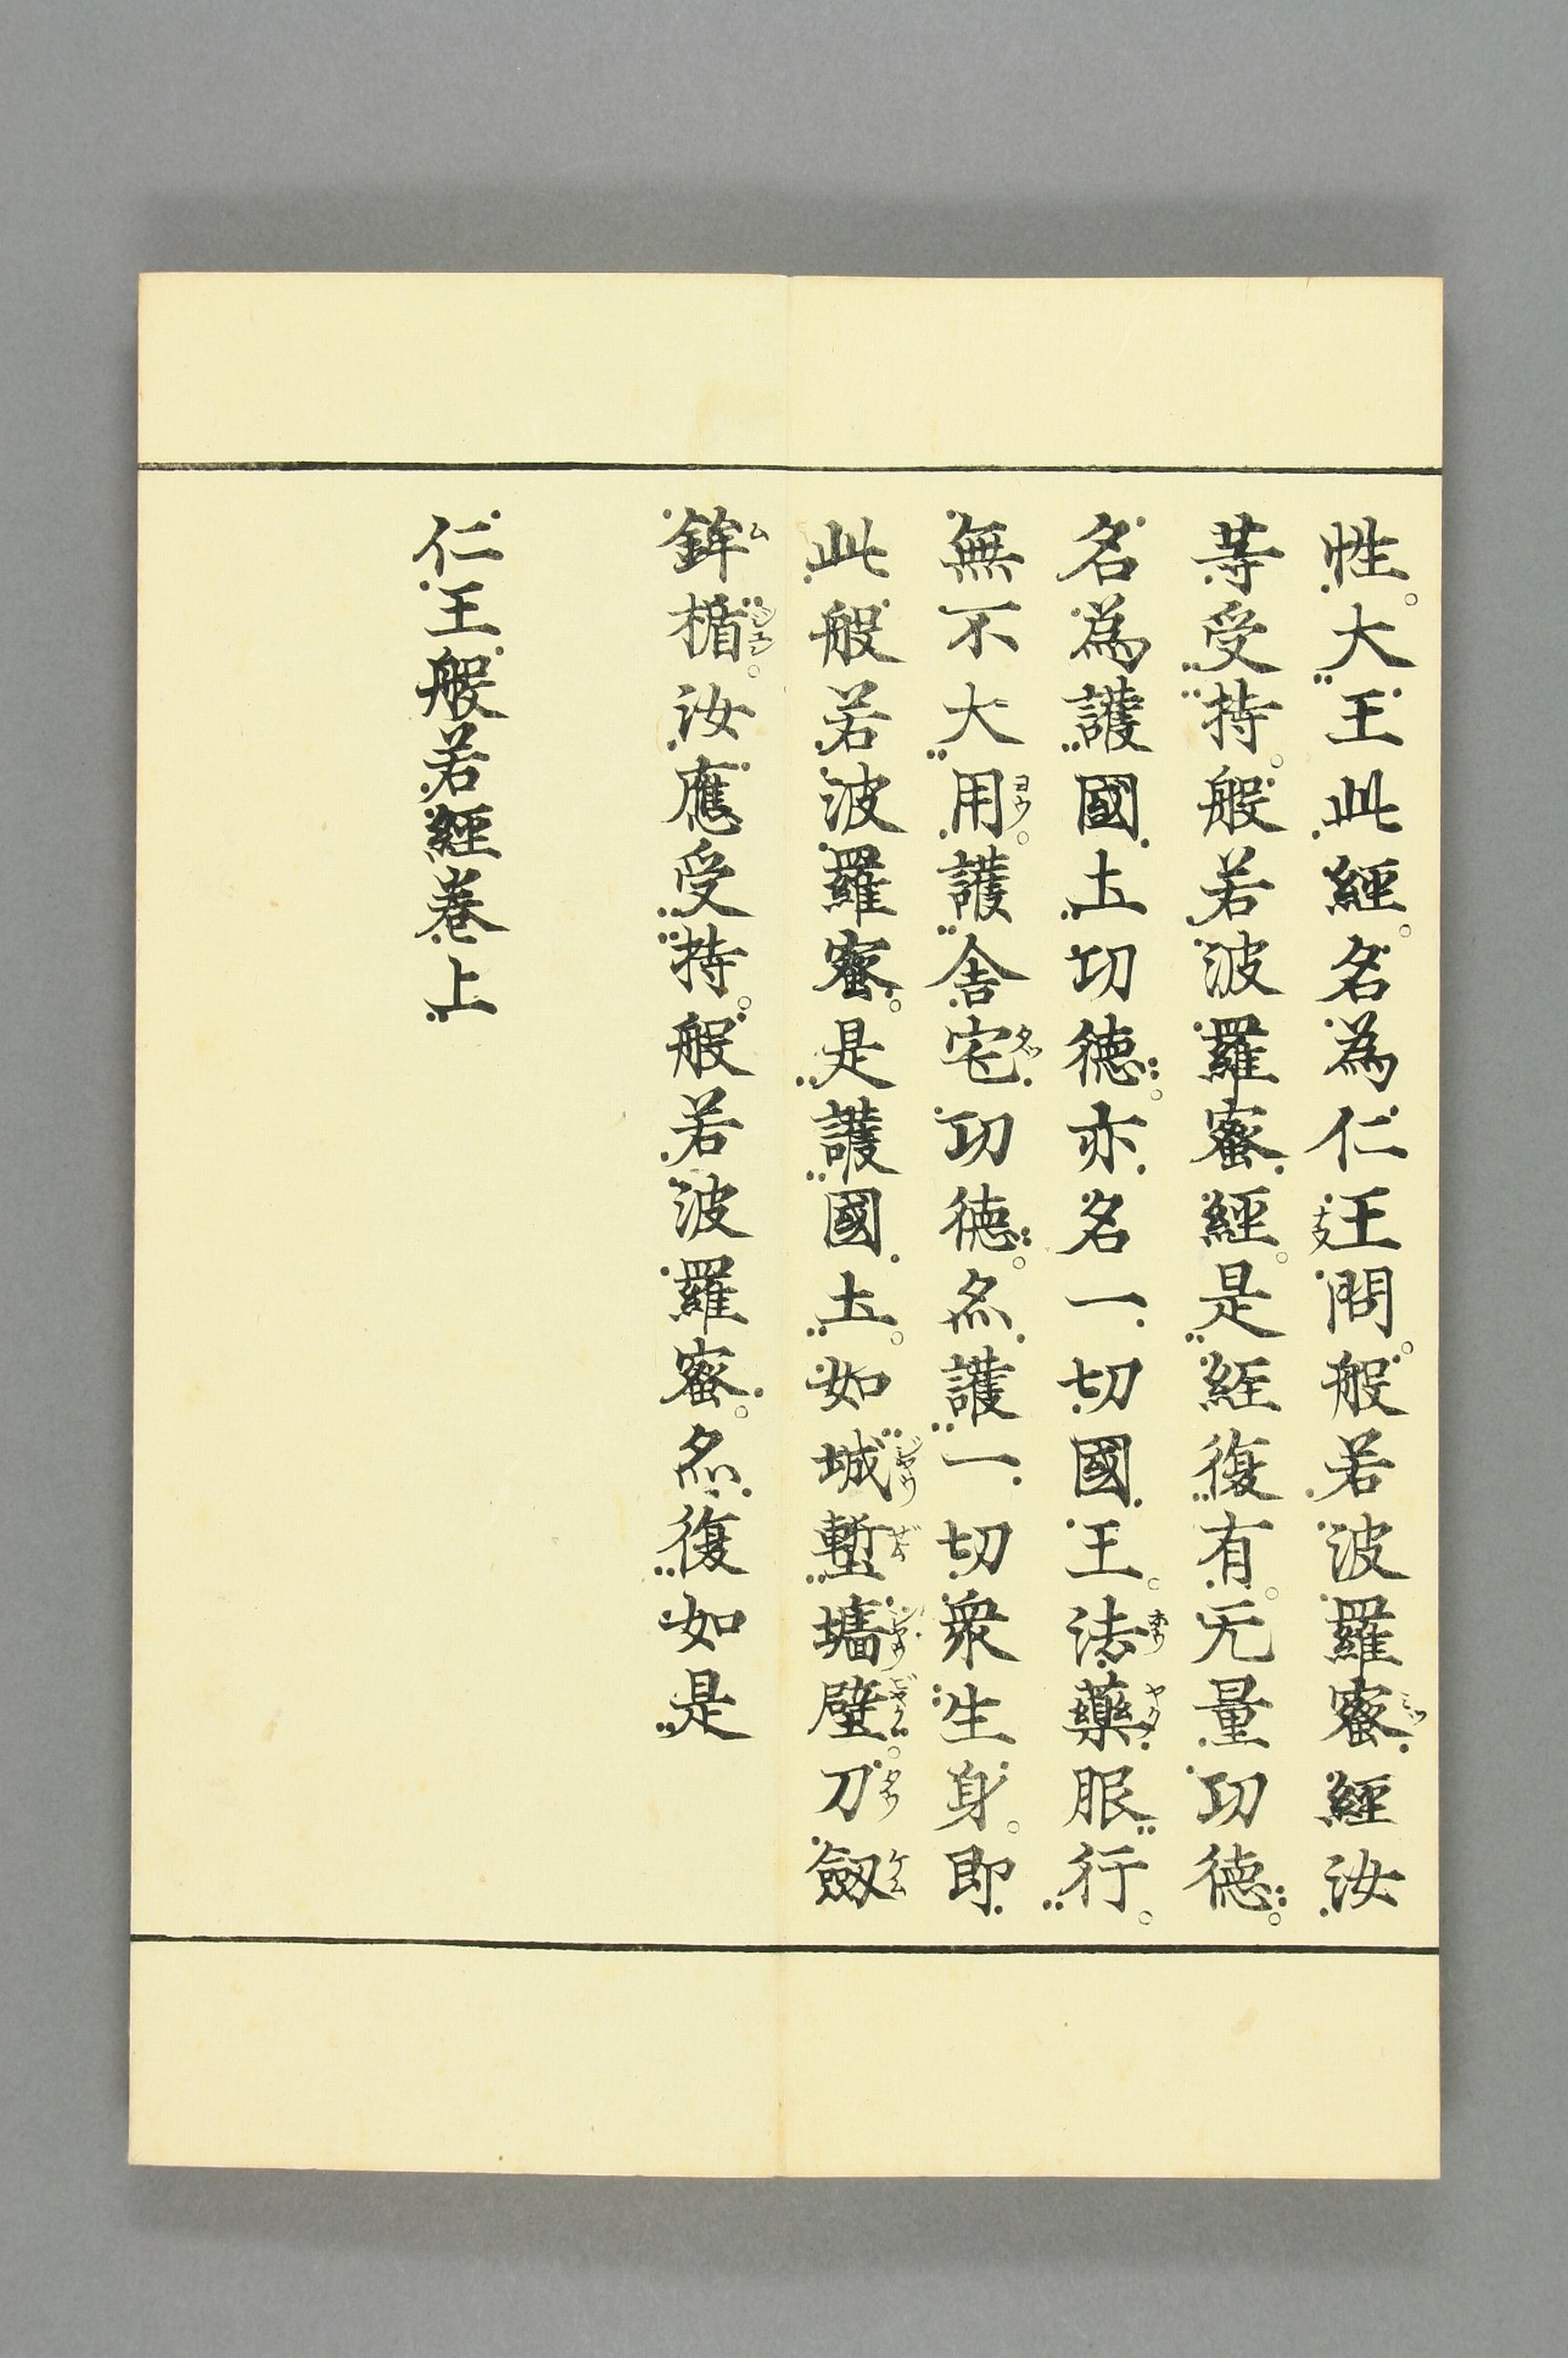 性大王此經名為仁王問般若波羅蜜經汝
等受持般若波羅蜜經是經復有无量功德
名為護國土功德亦名一切國王法藥服行
無不大用護舍宅功德亦護一切衆生身即
此般若波羅蜜是護國土如城塹墻壁刀劔
鉾楯汝應受持般若波羅蜜亦復如是
仁王般若經巻上